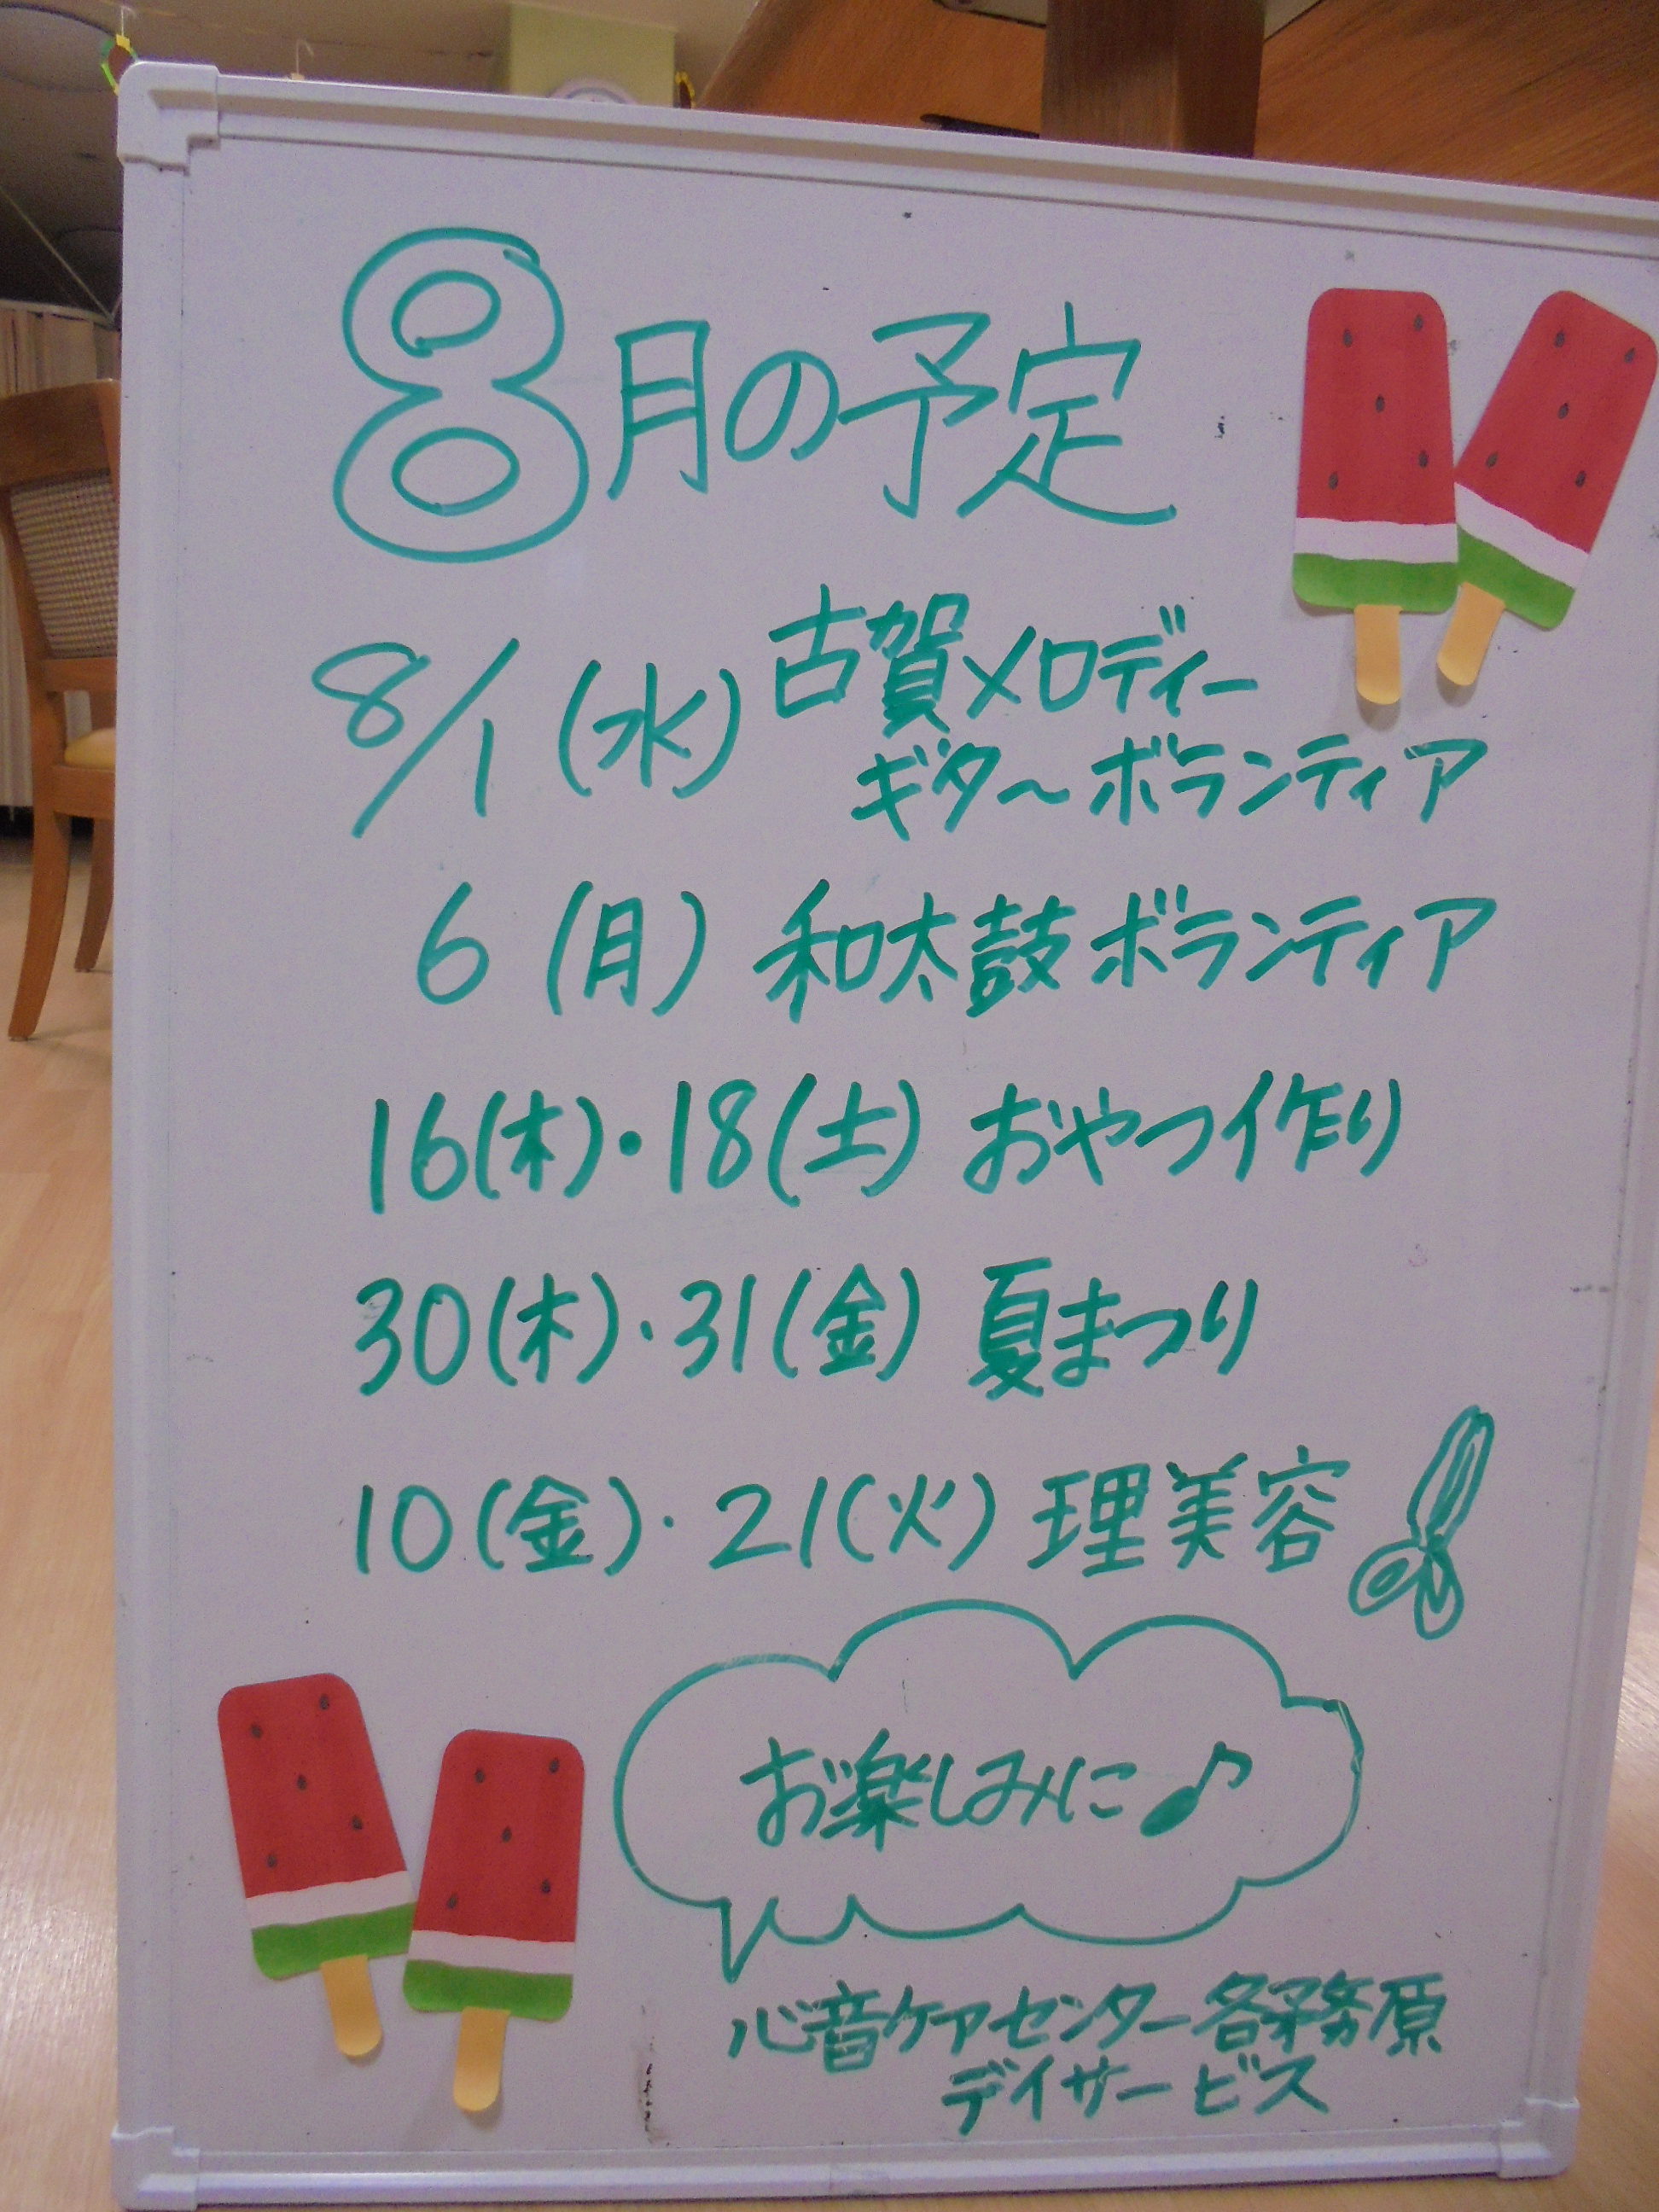 8月の予定
8/1(水)古賀メロディー
ギター ボランティア
6(月)和太鼓ボランティア
16(木)・18(土)おやつ作り
30(木)・31(金)夏まつり
10(金)・21(火)理美容
お楽しみに♪
心音ケアセンター各務原
デイサービス